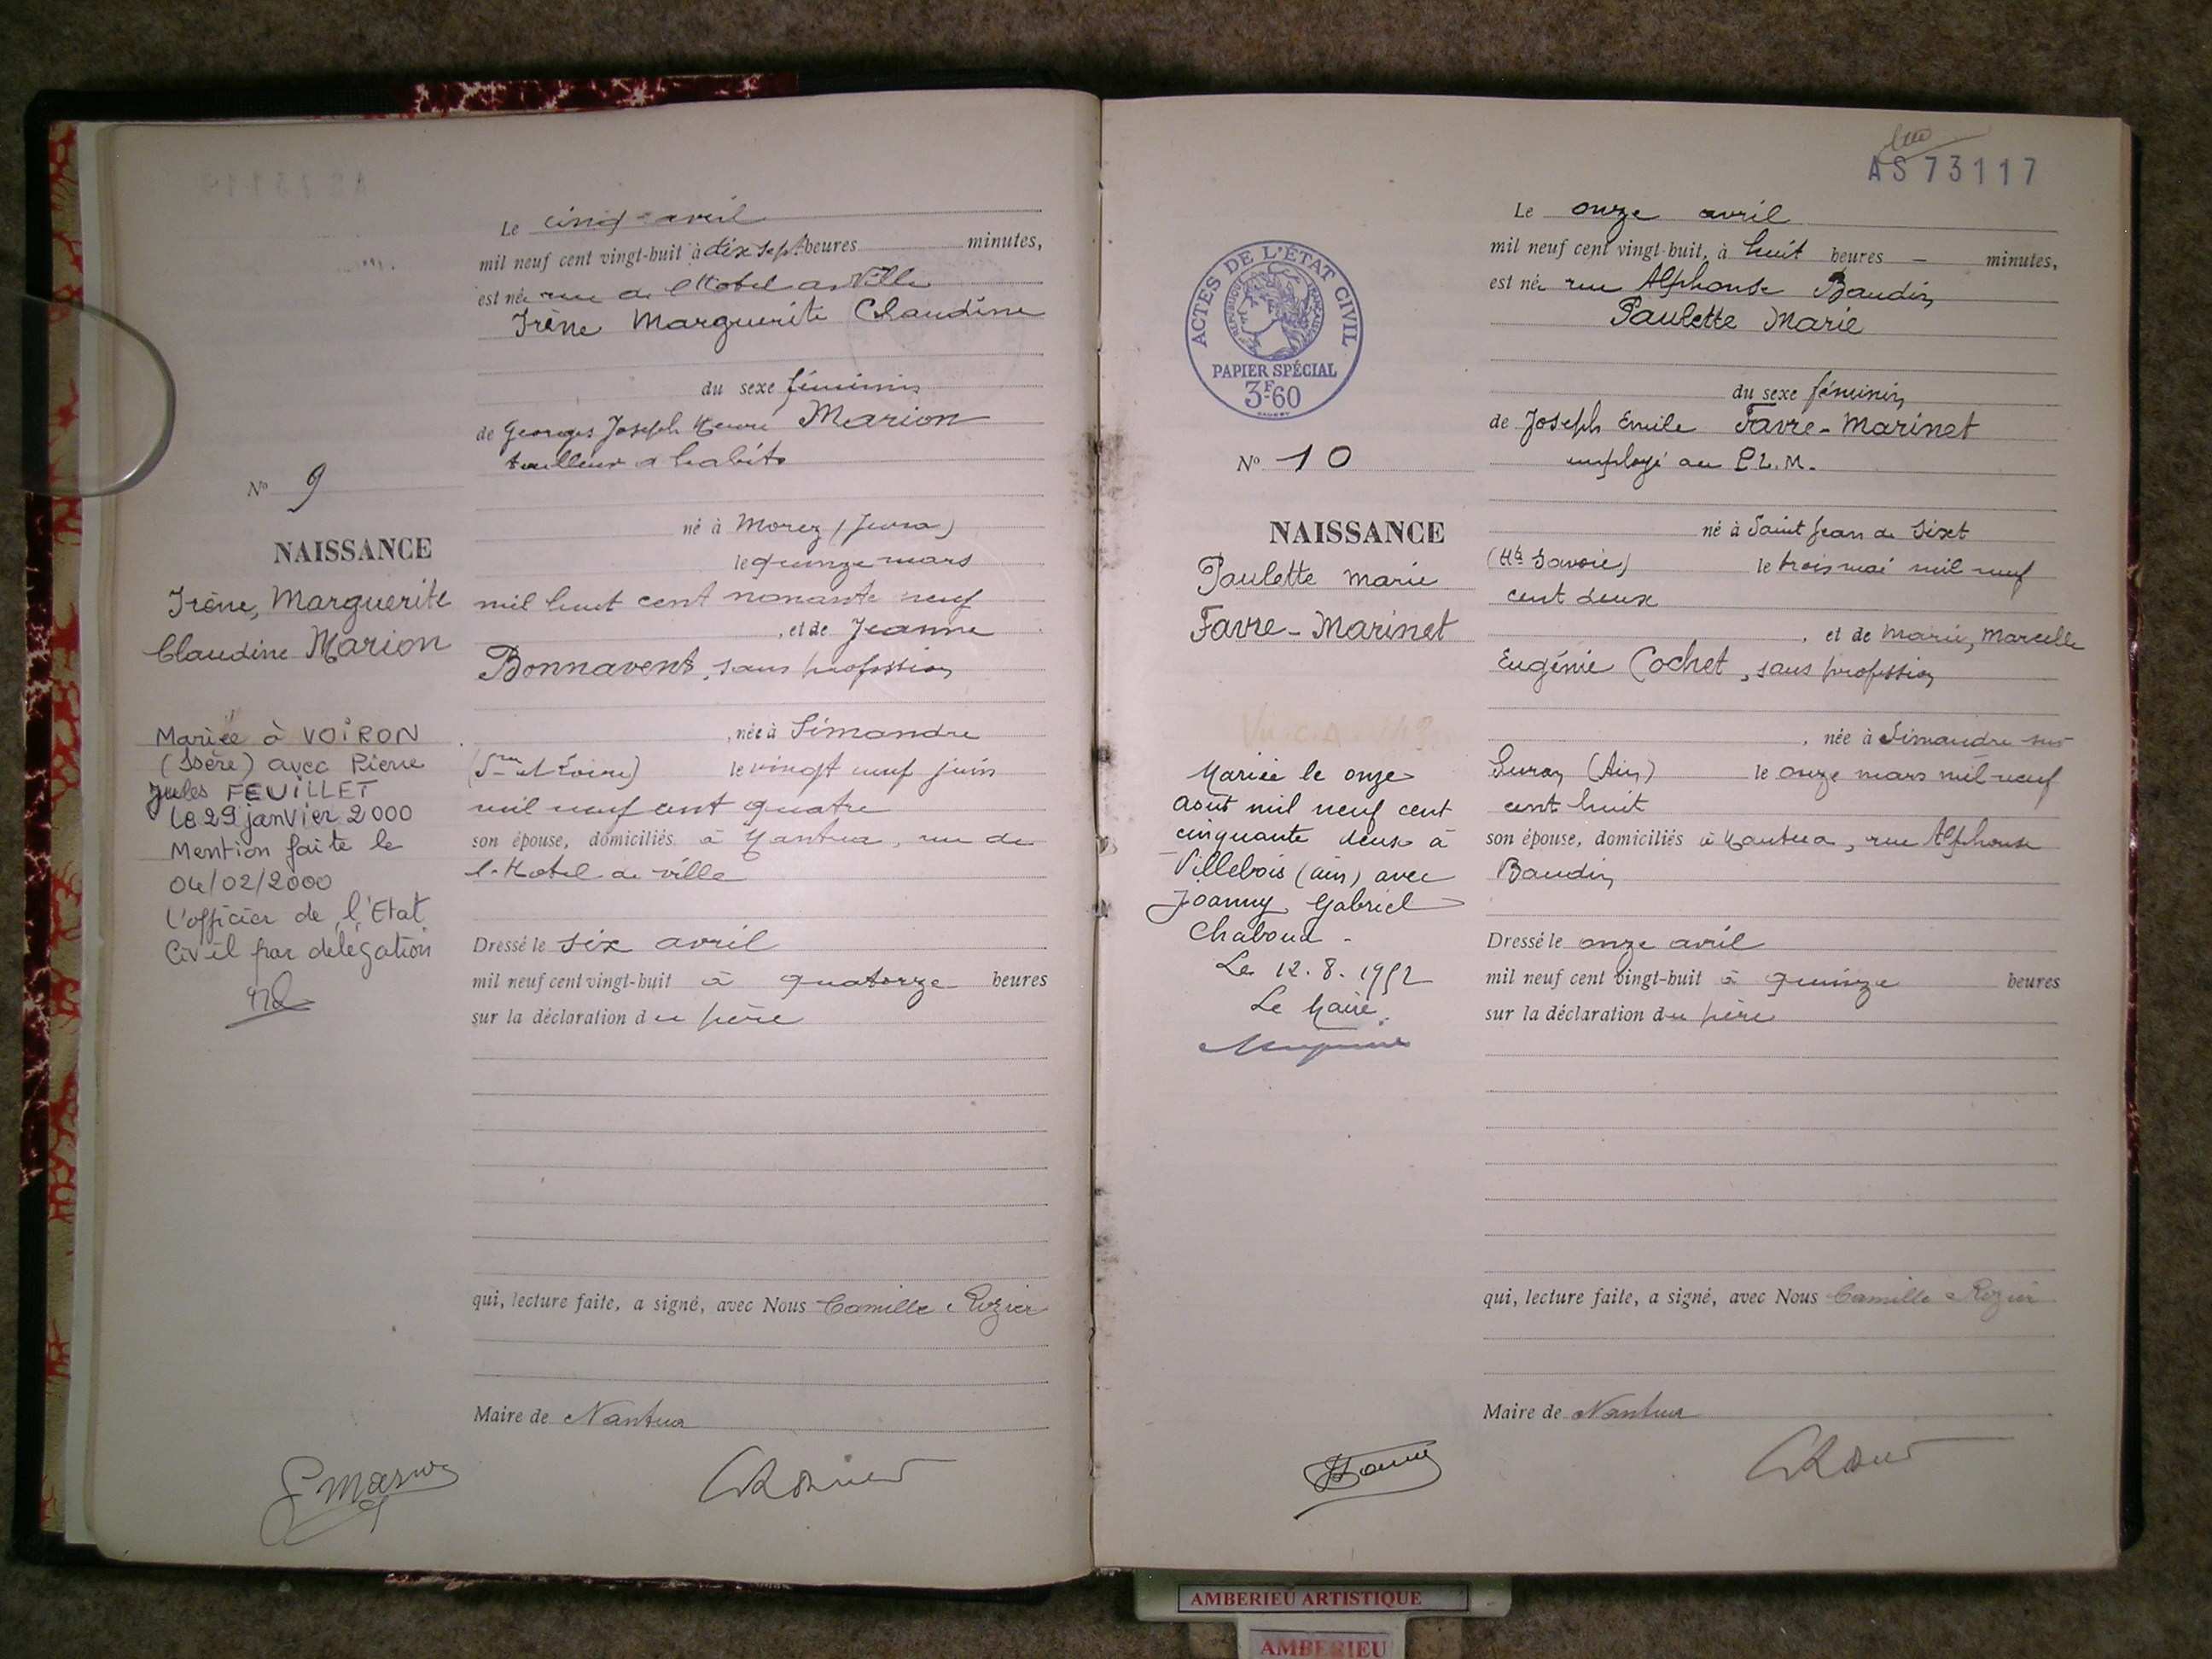 Le cinq avril
mil neuf cent vingt-huit à dix sept heures minutes,
est née rue de l'Hotel de Ville
Irène Marguerite Claudine
du sexe féminin
de Georges Joseph Henri Marion
tailleur d'habits
né à Morez (Jura)
le quinze mars
mil huit cent nonante neuf
, et de Jeanne
Bonnavent, sans profession
, née à Simandre
(Sne et Loire) le vingt neuf juin
mil neuf cent quatre
son épouse, domiciliés à Nantua, rue de
l'Hotel de ville
Dressé le six avril
mil neuf cent vingt-huit à quatorze heures
sur la déclaration du père
qui, lecture faite, a signé, avec Nous Camille Rozier
Maire de Nantua
No 9
NAISSANCE
Irène, Marguerite
Claudine Marion
Mariée à VOIRON
(Isère) avec Pierre
Jules FEUILLET
le 29 janvier 2000
Mention faite le
04/02/2000
L'officier de l'Etat
Civil par délégation
AS 73117
Le onze avril
mil neuf cent vingt-huit, à huit heures — minutes,
est née rue Alphonse Baudin
Paulette Marie
du sexe féminin
de Joseph Emile Favre-Marinet
employé au P.L.M.
né à Saint Jean de Sixt
(Hte Savoie) le trois mai mil neuf
cent deux
, et de Marie, Marcelle
Eugénie Cochet, sans profession
, née à Simandre sur
Suran (Ain) le onze mars mil neuf
cent huit
son épouse, domiciliés à Nantua, rue Alphonse
Baudin
Dressé le onze avril
mil neuf cent vingt-huit à quinze heures
sur la déclaration du père
qui, lecture faite, a signé, avec Nous Camille Rozier
Maire de Nantua
ACTES DE L'ÉTAT CIVIL
RÉPUBLIQUE FRANÇAISE
PAPIER SPÉCIAL
3F60
No 10
NAISSANCE
Paulette Marie
Favre-Marinet
Mariée le onze
août mil neuf cent
cinquante deux à
Villebois (ain) avec
Joanny Gabriel
Chaboud -
Le 12.8.1952
Le Maire.
AMBERIEU ARTISTIQUE
AMBERIEU